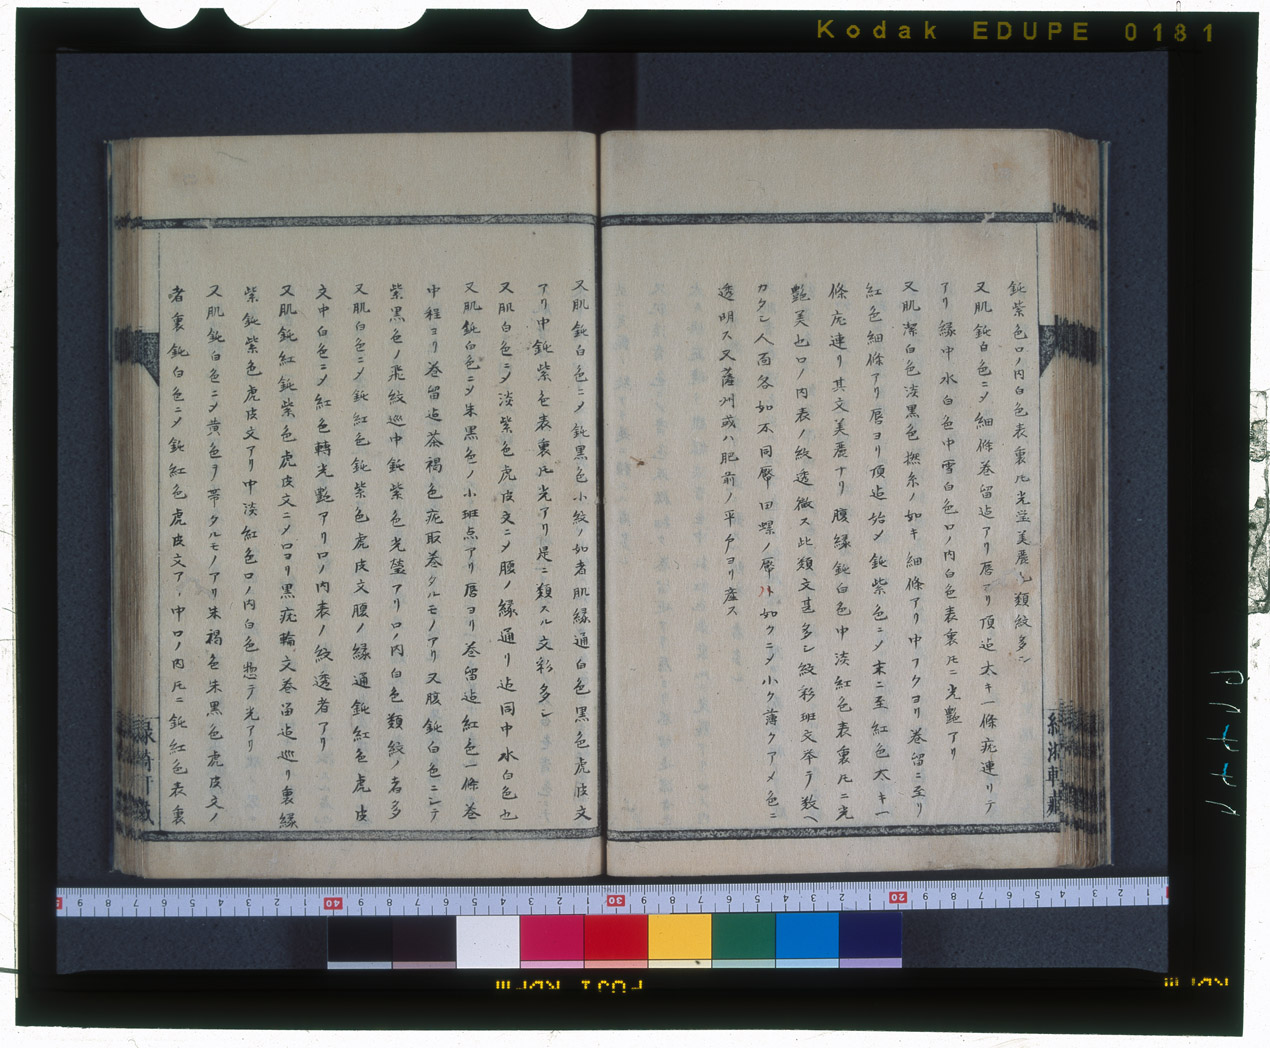 Kodak EDUPE 0181
鈍紫色口ノ内白色表裏ﾋﾞ光瑩美麗也類紋多シ
又肌鈍白色ニメ細條巻留迠アリ唇ヨリ頂迠太キ一條疵連リテ
アリ縁中水白色中雪白色口ノ内白色表裏ﾋﾞニ光艶アリ
又肌潔白色淡黒色撚糸ノ如キ細條アリ中フクヨリ巻留ニ至リ
紅色細條アリ唇ヨリ頂迠始メ鈍紫色ニメ末ニ至紅色太キ一
條疵連リ其文美麗ナリ腹縁鈍白色中淡紅色表裏ﾋﾞニ光
艶美也口ノ内表ノ紋透微ス此類文甚多シ紋彩班文挙テ数ヘ
カタシ人面各如不同厴田螺ノ厴ノ如クニメ小ク薄クアメ色ニ
透明ス又薩州或ハ肥前ノ平戸ヨリ産ス
又肌鈍白色ニメ鈍黒色小紋ノ如者肌縁通白色黒色虎皮文
アリ中鈍紫色表裏ﾋﾞ光アリ是ニ類スル文彩多シ
又肌白色ニメ淡紫色虎皮文ニメ腰ノ縁通リ迠同中水白色也
又肌鈍白色ニメ朱黒色ノ小斑点アリ唇ヨリ巻留迠紅色一條巻
中程ヨリ巻留迠茶褐色疵取巻タルモノアリ又腹鈍白色ニシテ
紫黒色ノ飛紋巡中鈍紫色光瑩アリ口ノ内白色類紋ノ者多
又肌白色ニメ鈍紅色鈍紫色虎皮文腰ノ縁通鈍紅色虎皮
文中白色ニメ紅色轉光艶アリ口ノ内表ノ紋透者アリ
又肌鈍紅鈍紫色虎皮文ニメ口ヨリ黒疵輪文巻留迠巡リ裏縁
紫鈍紫色虎皮文アリ中淡紅色口ノ内白色惣テ光アリ
又肌鈍白色ニメ黄色ヲ帯タルモノアリ朱褐色朱黒色虎皮文ノ
者裏鈍白色ニメ鈍紅色虎皮文アリ中口ノ内ﾋﾞニ鈍紅色表裏